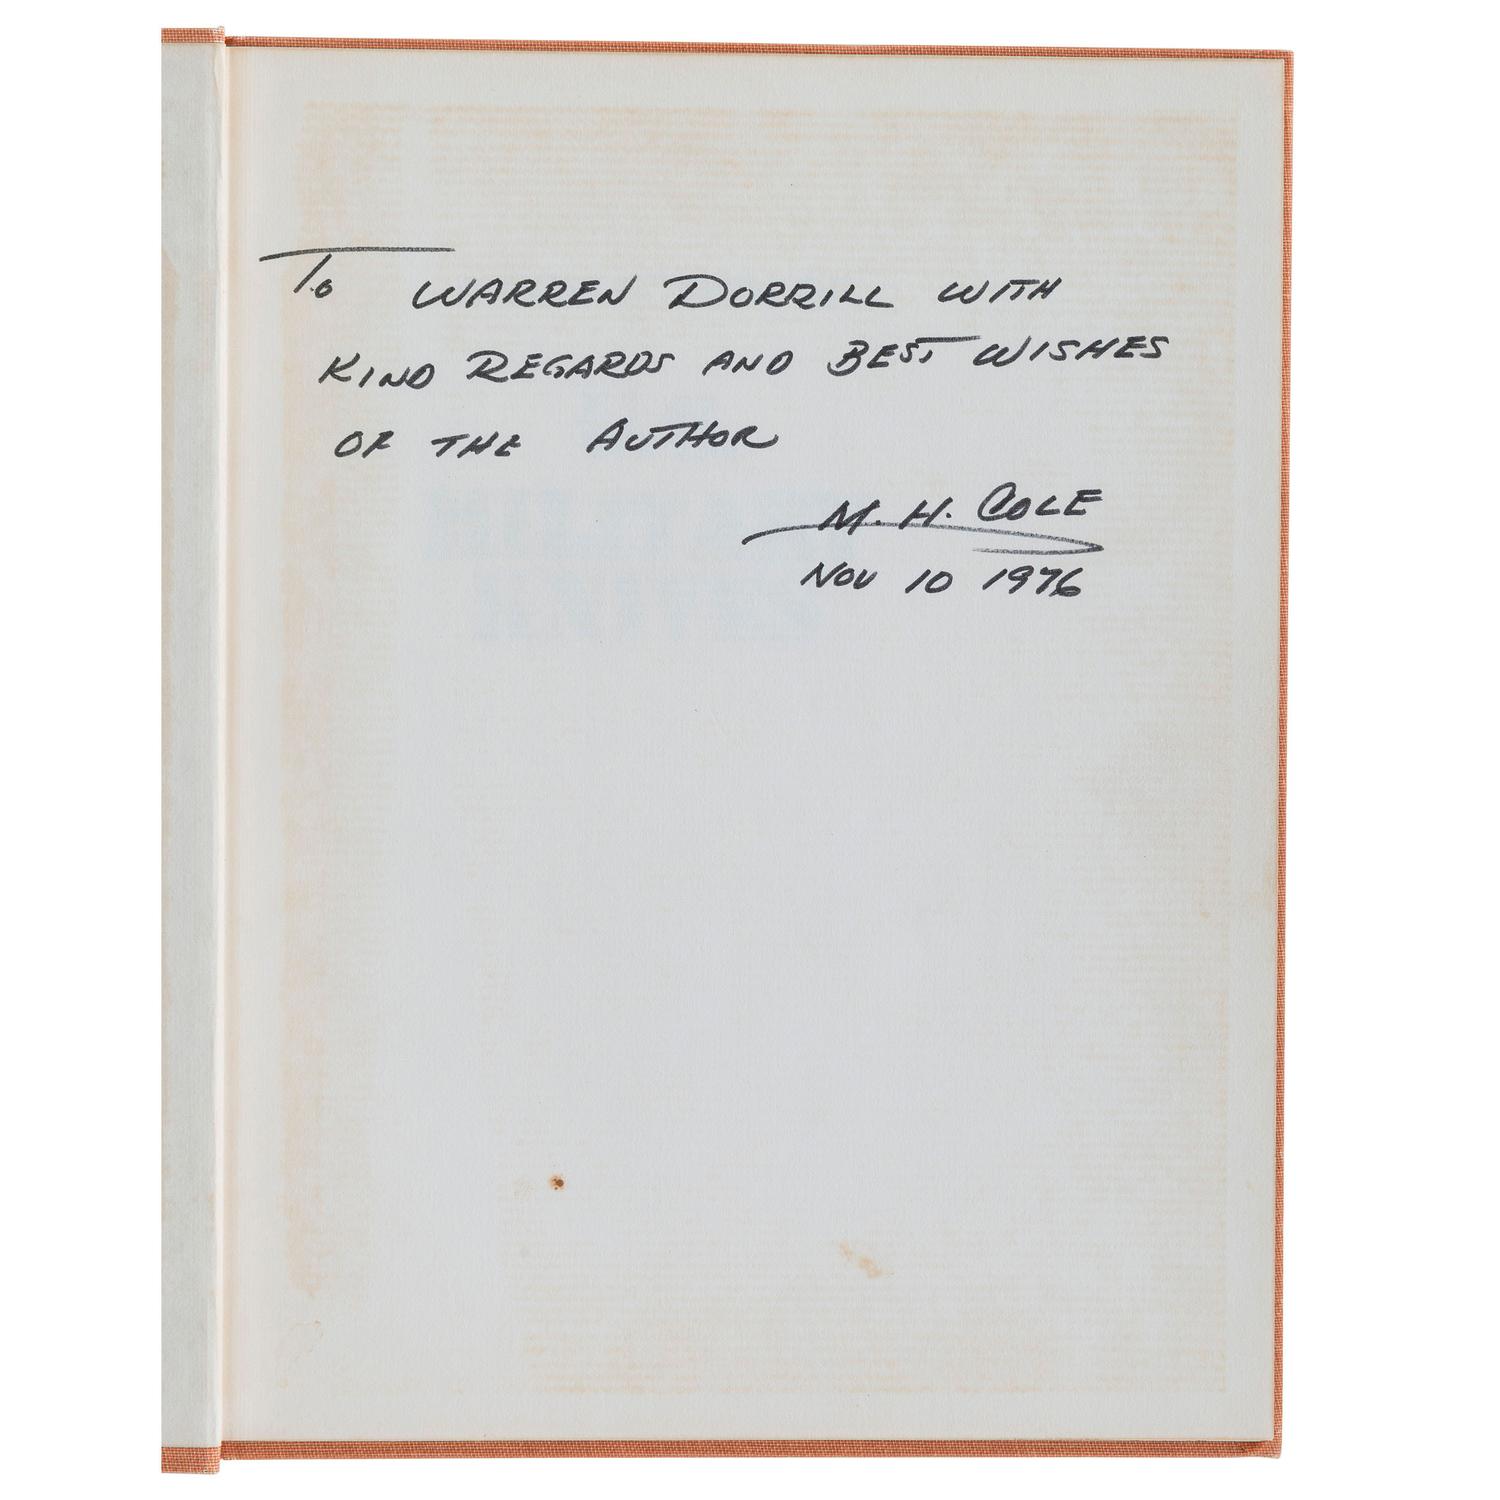 To WARREN DORRILL WITH
KIND REGARDS AND BEST WISHES
OF THE AUTHOR
M. H. COLE
NOV 10 1976